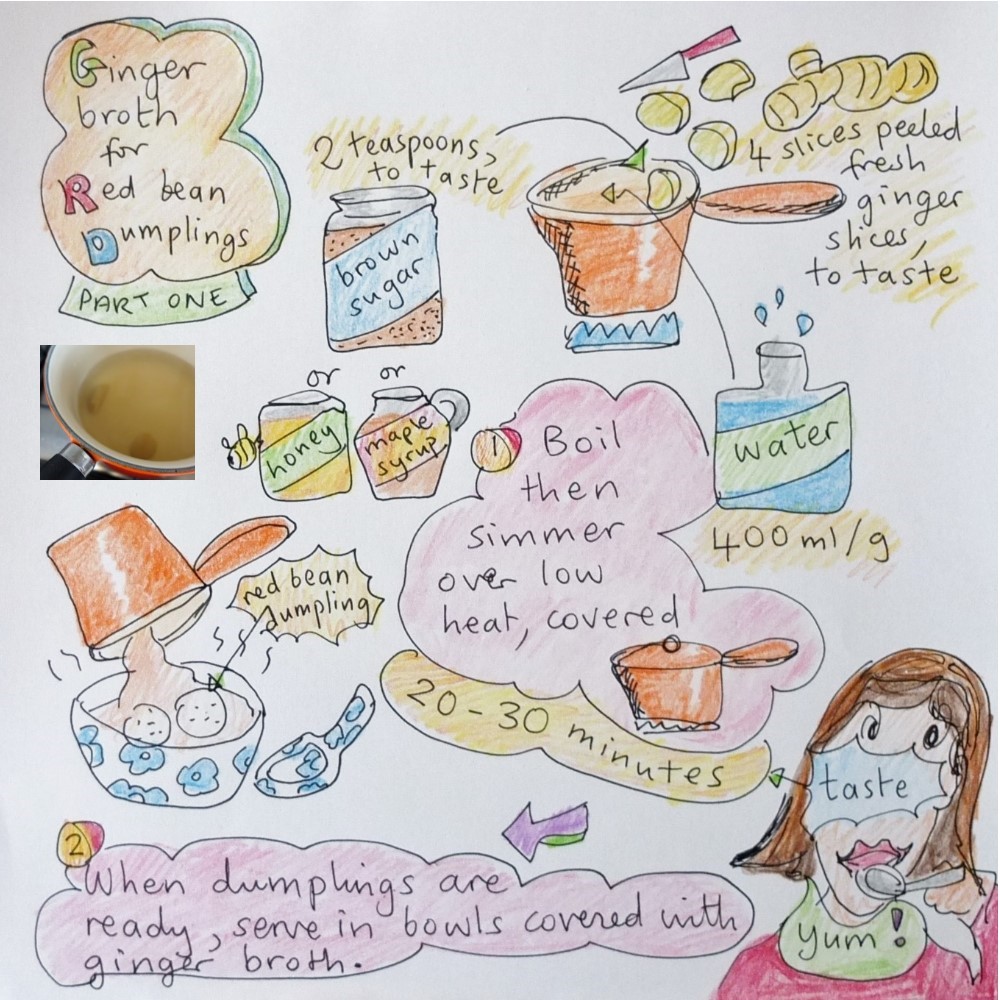 Ginger
broth
for
Red bean
Dumplings
PART ONE
2 teaspoons,
to taste
brown
sugar
or
honey
or
maple
syrup
4 slices peeled
fresh
ginger
slices,
to taste
water
400 ml/g
1
Boil
then
simmer
over low
heat, covered
20-30 minutes
taste
yum!
red bean
dumpling
2
When dumplings are
ready, serve in bowls covered with
ginger broth.